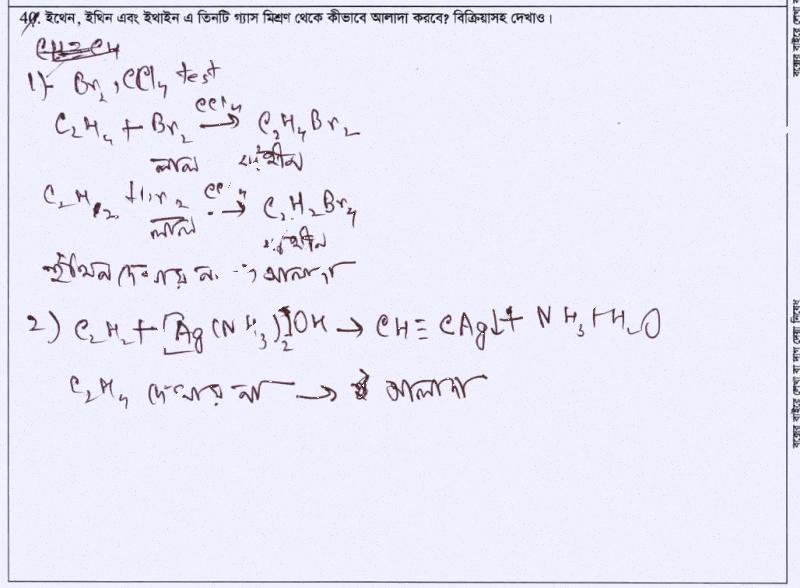 49. ইথেন, ইথিন এবং ইথাইন এ তিনটি গ্যাস মিশ্রণ থেকে কীভাবে আলাদা করবে? বিক্রিয়াসহ দেখাও।
1) Br₂, CCl₄ test
C₂H₄ + Br₂ →(CCl₄) C₂H₄Br₂
লাল বর্ণহীন
C₂H₂ + Br₂ →(CCl₄) C₂H₂Br₄
লাল বর্ণহীন
দেখায় না → আলাদা
2) C₂H₂ + [Ag(NH₃)₂]OH → CH≡CAg↓ + NH₃ + H₂O
C₂H₄ দেখায় না → আলাদা